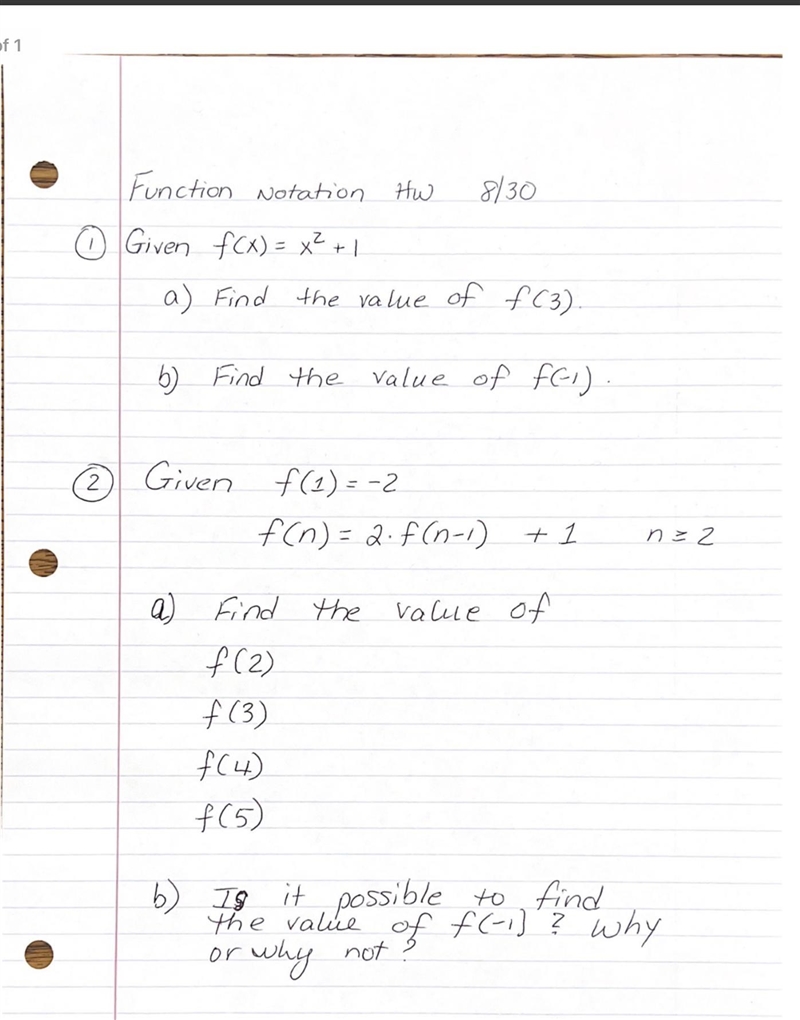 of 1
Function Notation HW 8/30
① Given f(x) = x² + 1
a) Find the value of f(3).
b) Find the value of f(-1).
② Given f(1) = -2
f(n) = 2·f(n-1) + 1 n ≥ 2
a) Find the value of
f(2)
f(3)
f(4)
f(5)
b) Is it possible to find
the value of f(-1)? Why
or why not?